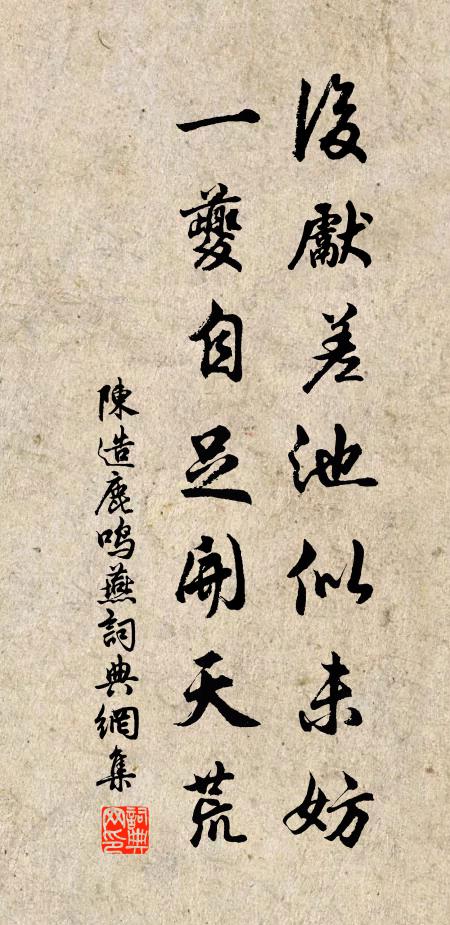 後獻差池似未妨
一夔自足開天荒
陳造鹿鳴燕詞典網集
詞典網印